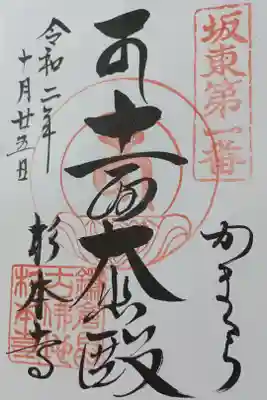 坂東第一番
かまくら
十一面大悲殿
令和二年
十月廿五日
杉本寺